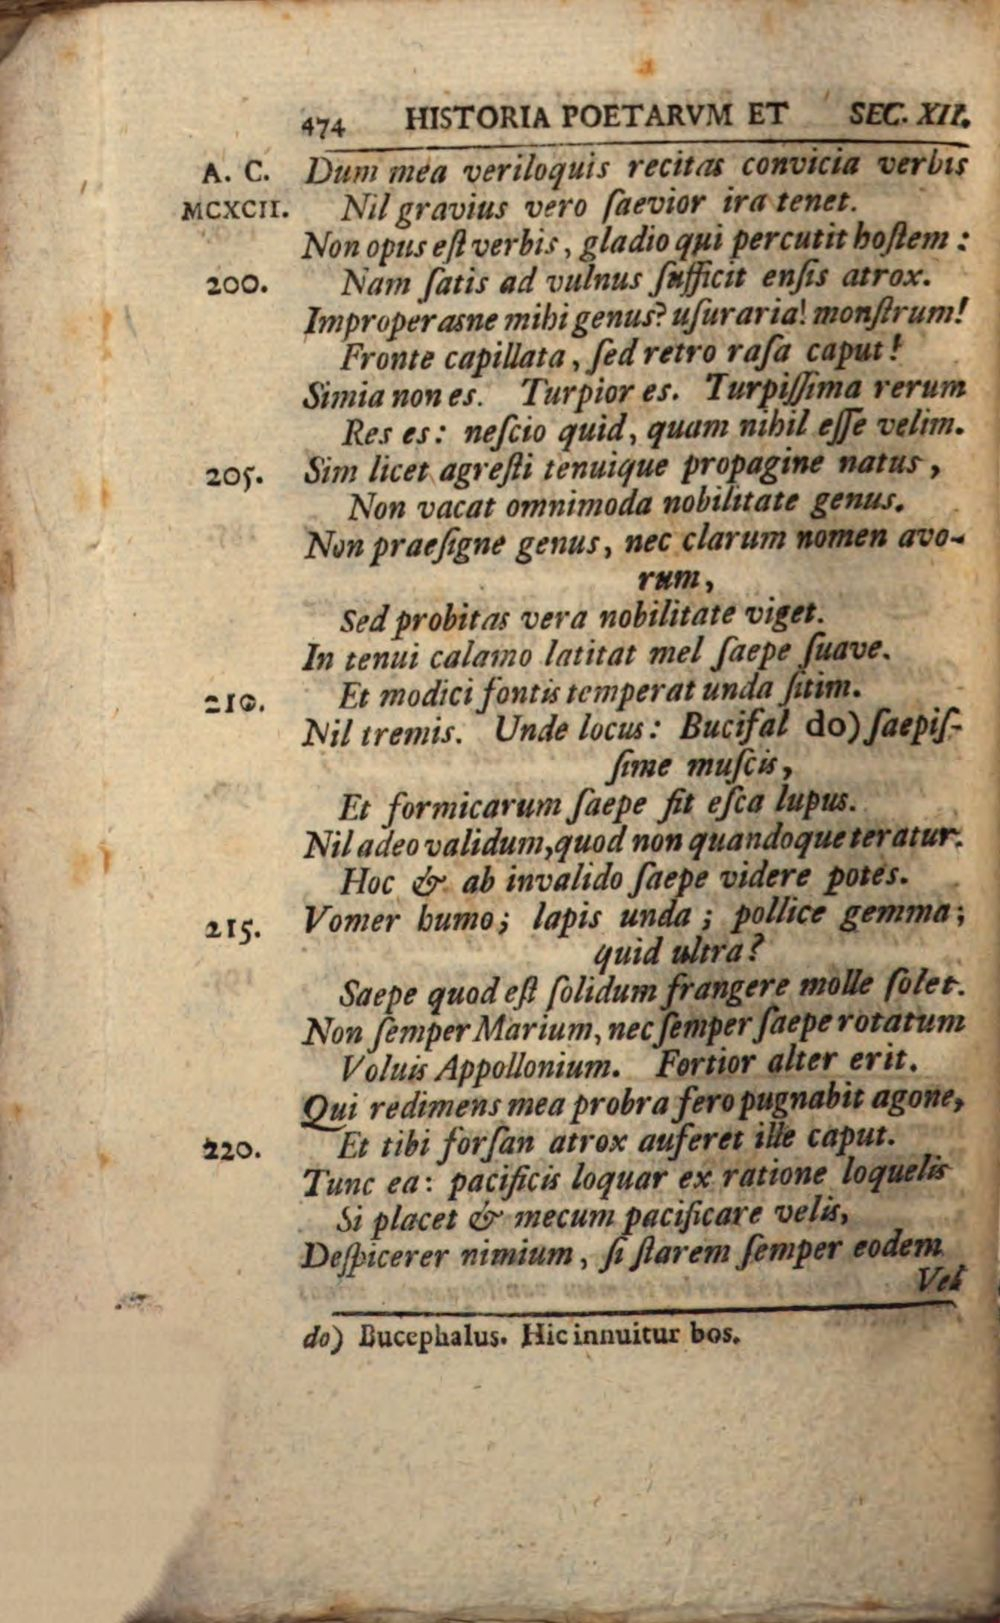 474 HISTORIA POETARVM ET SEC. XII.
A. C. Dum mea veriloquis recitas convicia verbis
MCXCII. Nil gravius vero ſaevior ira tenet.
Non opus eſt verbis, gladio qui percutit hoſtem:
200. Nam ſatis ad vulnus ſufficit enſis atrox.
Improperasne mihi genus? uſuraria! monſtrum!
Fronte capillata, ſed retro raſa caput!
Simia non es. Turpior es. Turpiſſima rerum
Res es: neſcio quid, quam nihil eſſe velim.
205. Sim licet agreſti tenuique propagine natus,
Non vacat omnimoda nobilitate genus.
Non praeſigne genus, nec clarum nomen avo-
rum,
Sed probitas vera nobilitate viget.
In tenui calamo latitat mel ſaepe ſuave.
210. Et modici fontis temperat unda ſitim.
Nil tremis. Unde locus: Bucifal do) ſaepiſ-
ſime muſcis,
Et formicarum ſaepe fit eſca lupus.
Nil adeo validum, quod non quandoque teratur.
Hoc & ab invalido ſaepe videre potes.
215. Vomer humo; lapis unda; pollice gemma;
quid ultra?
Saepe quod eſt ſolidum frangere molle ſolet.
Non ſemper Marium, nec ſemper ſaepe rotatum
Voluis Appollonium. Fortior alter erit.
Qui redimens mea probra fero pugnabit agone,
220. Et tibi forſan atrox auferet ille caput.
Tunc ea: pacificis loquar ex ratione loquelis
Si placet & mecum pacificare velis,
Deſpicerer nimium, ſi ſtarem ſemper eodem
Vel
do) Bucephalus. Hic innuitur bos.